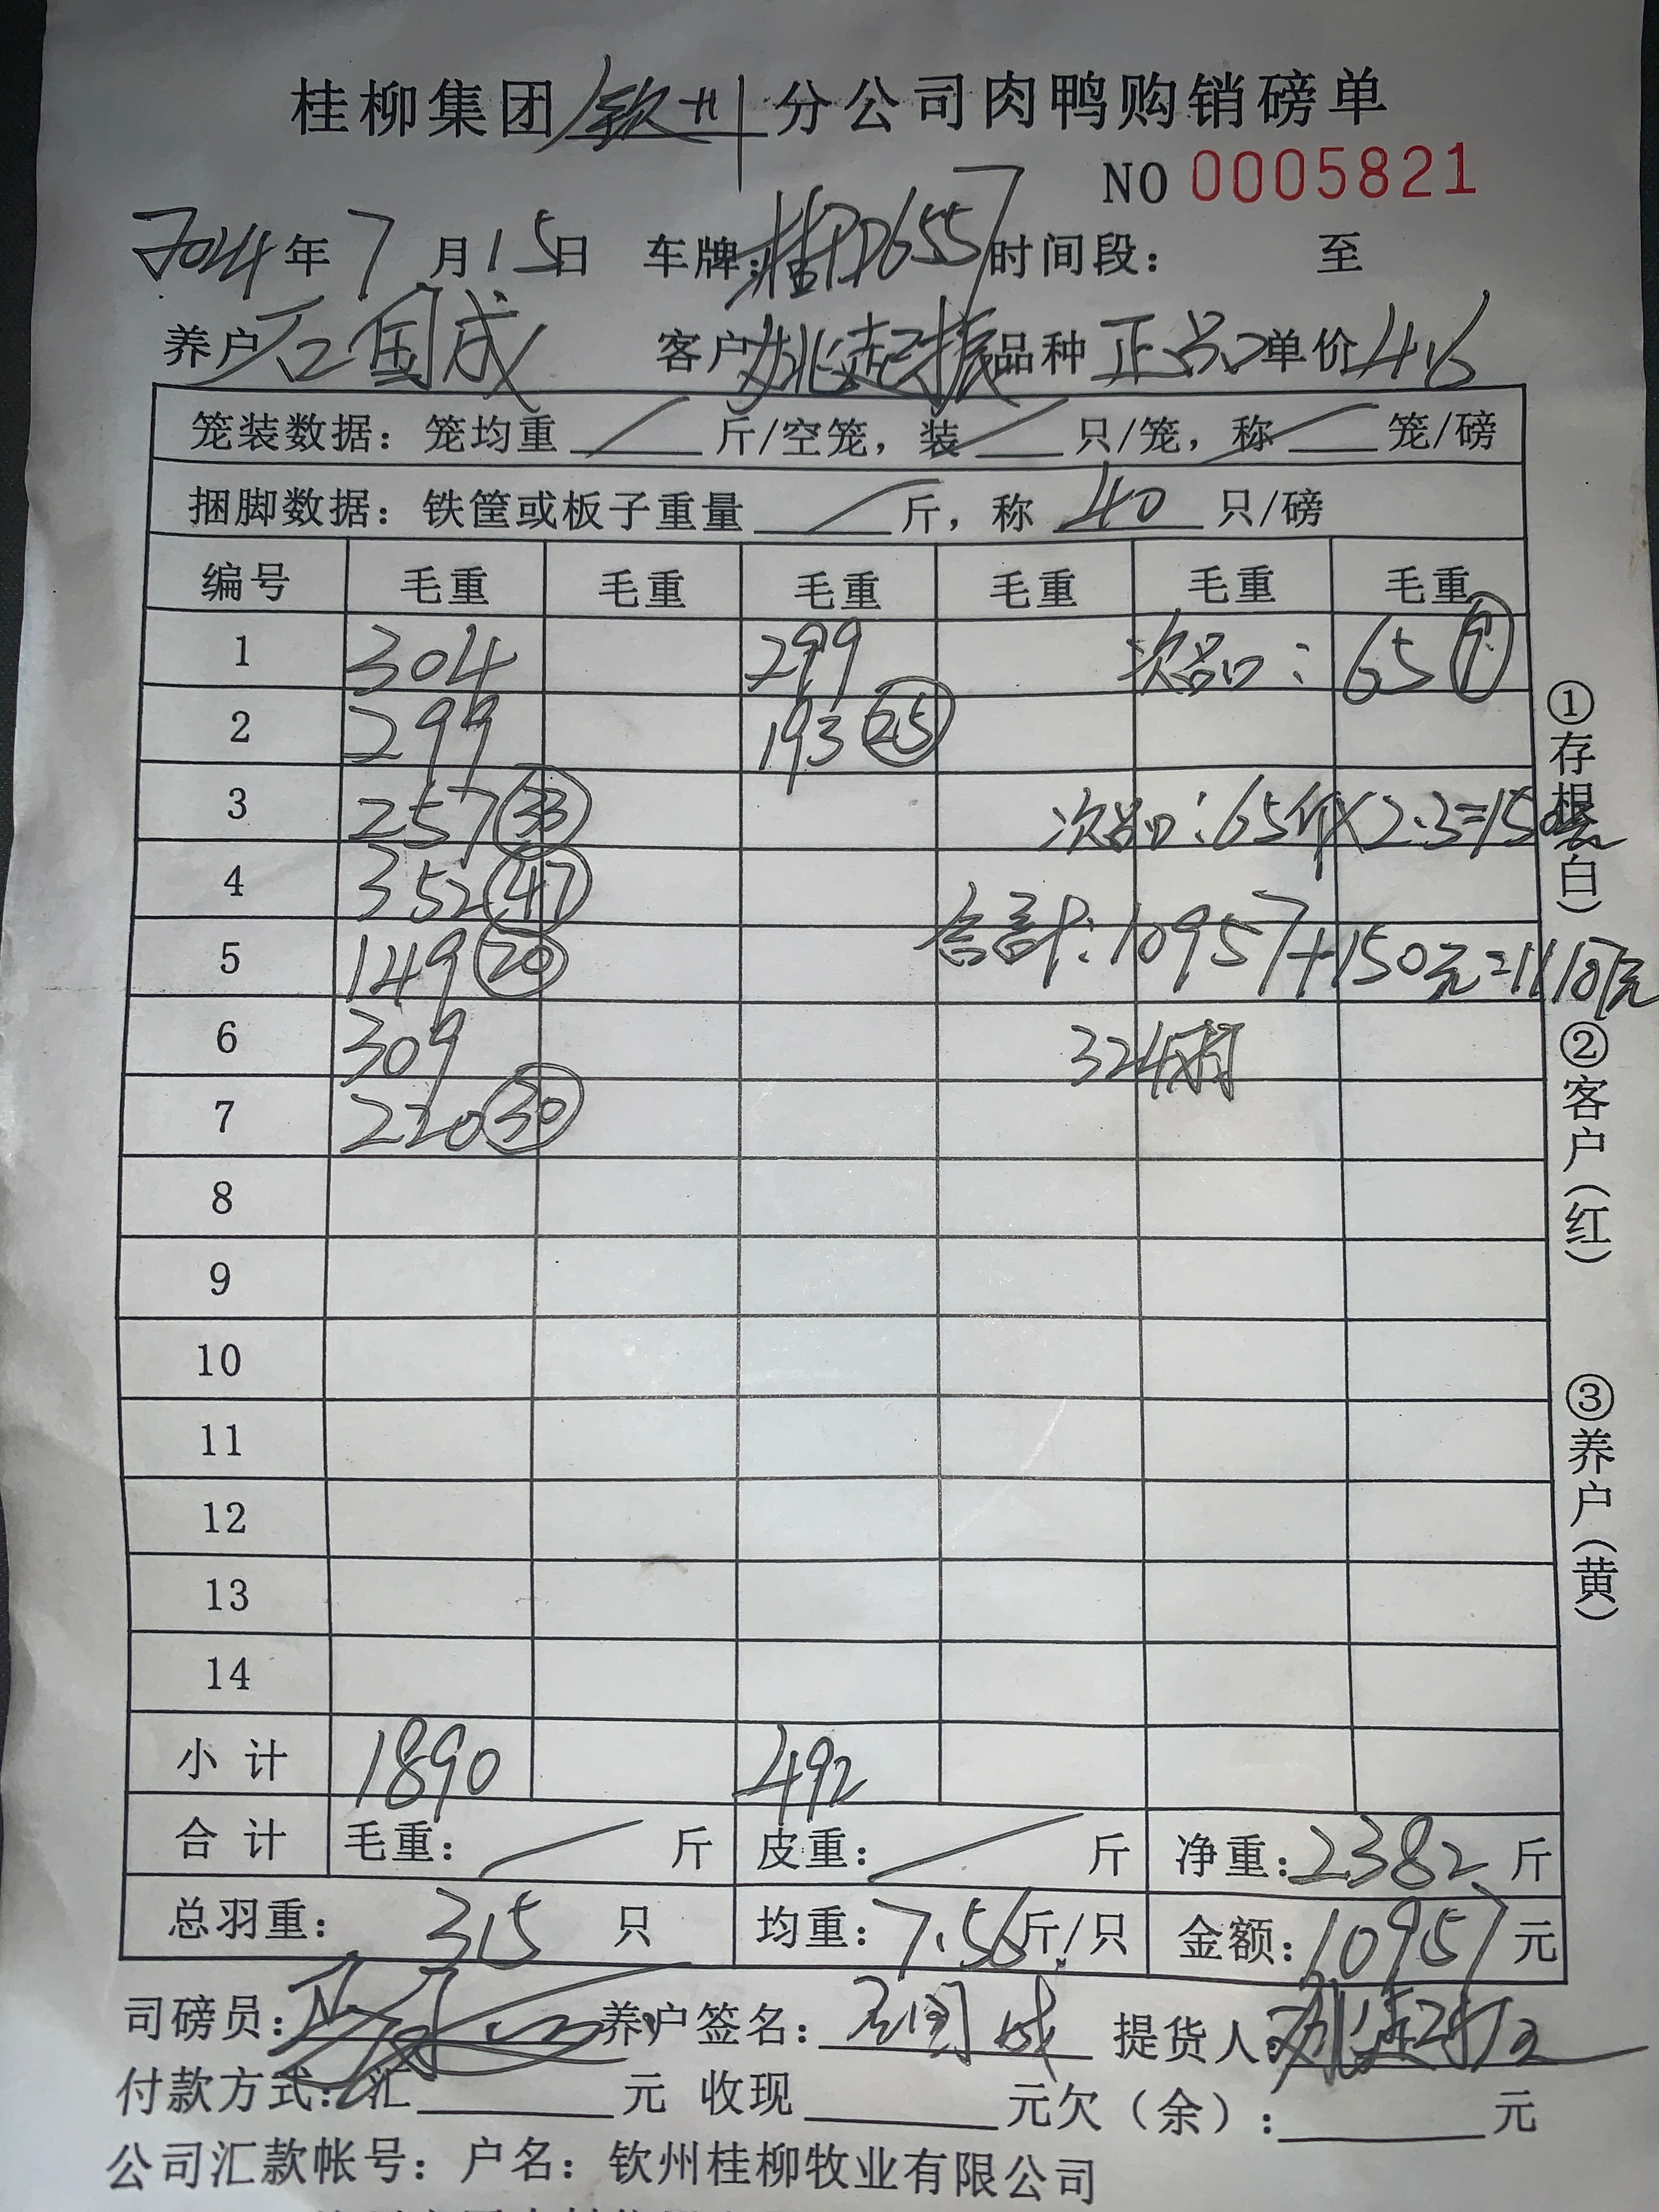 桂柳集团钦州分公司肉鸭购销磅单
NO 0005821
2024年7月15日 车牌:桂PD6557时间段: 至
养户石国成 客户姚起振品种正品单价4.6
笼装数据:笼均重 斤/空笼,装 只/笼,称 笼/磅
捆脚数据:铁筐或板子重量 斤,称 40 只/磅
编号 毛重 毛重 毛重 毛重 毛重 毛重
1 304 299 次品: 65 9
2 299 193 25
3 257 33 次品:65斤×2.3=150
4 352 47
5 149 20 合计:10957+150元=11107元
6 309 324
7 220 30
8
9
10
11
12
13
14
小计 1890 492
合计 毛重: 斤 皮重: 斤 净重:2382斤
总羽重: 315 只 均重:7.56斤/只 金额:10957元
司磅员: 养户签名:石国成 提货人:
付款方式:汇 元 收现 元欠(余): 元
公司汇款帐号:户名:钦州桂柳牧业有限公司
①存根(白)
②客户(红)
③养户(黄)